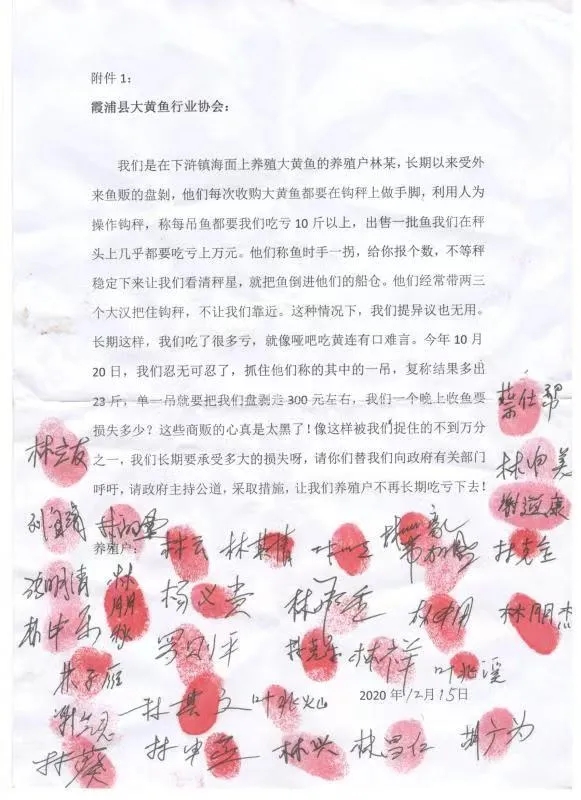 附件 1：
霞浦县大黄鱼行业协会：
我们是在下浒镇海面上养殖大黄鱼的养殖户林某，长期以来受外
来鱼贩的盘剥，他们每次收购大黄鱼都要在钩秤上做手脚，利用人为
操作钩秤，称每吊鱼都要我们吃亏 10 斤以上，出售一批鱼我们在秤
头上几乎都要吃亏上万元。他们称鱼时手一拐，给你报个数，不等秤
稳定下来让我们看清秤星，就把鱼倒进他们的船仓。他们经常带两三
个大汉把住钩秤，不让我们靠近。这种情况下，我们提异议也无用。
长期这样，我们吃了很多亏，就像哑吧吃黄连有口难言。今年 10 月
20 日，我们忍无可忍了，抓住他们称的其中的一吊，复称结果多出
23 斤，单一吊就要把我们盘剥走 300 元左右，我们一个晚上收鱼要
损失多少？这些商贩的心真是太黑了！像这样被我们捉住的不到万分
之一，我们长期要承受多大的损失呀，请你们替我们向政府有关部门
呼吁，请政府主持公道，采取措施，让我们养殖户不再长期吃亏下去！
蔡仕帮
林立友
林申美
谢道康
养殖户：
林云
林其清
林克全
张明清
林朋
杨义贵
林明
林朋杰
罗则平
林祥
叶兆溪
林子雁
林其文
叶兆灿
2020 年 12 月 15 日
林葵
林申
林兴
林昌仁
胡广为